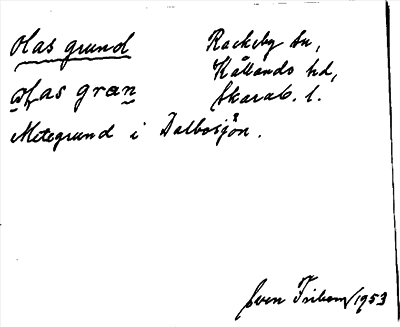 Olas grund Rackeby sn,
Kållands hd,
ωfas gran Skarab. l.
Metegrund i Dalbosjön.
Sven Fribom/1953